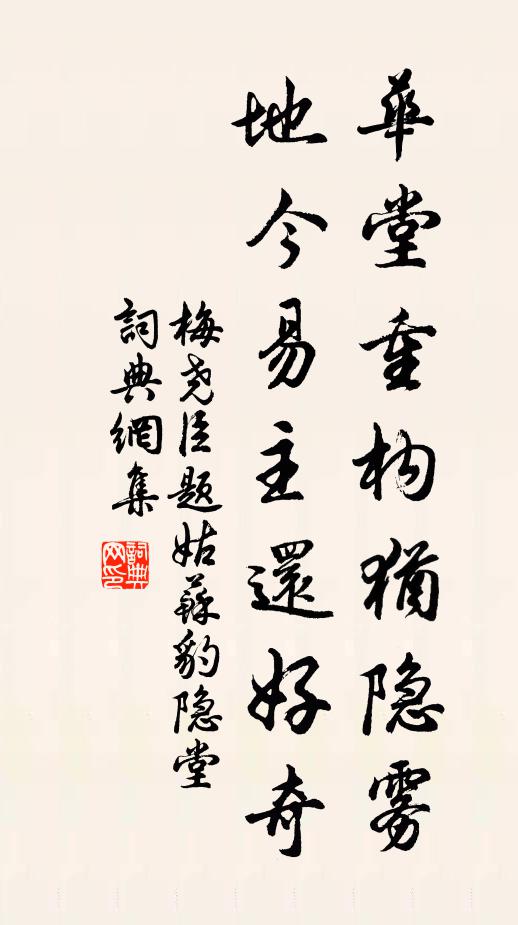 華堂重构猶隐雾
地今易主還好奇
梅尧臣题姑蘇豹隐堂
詞典網集
詞典网印